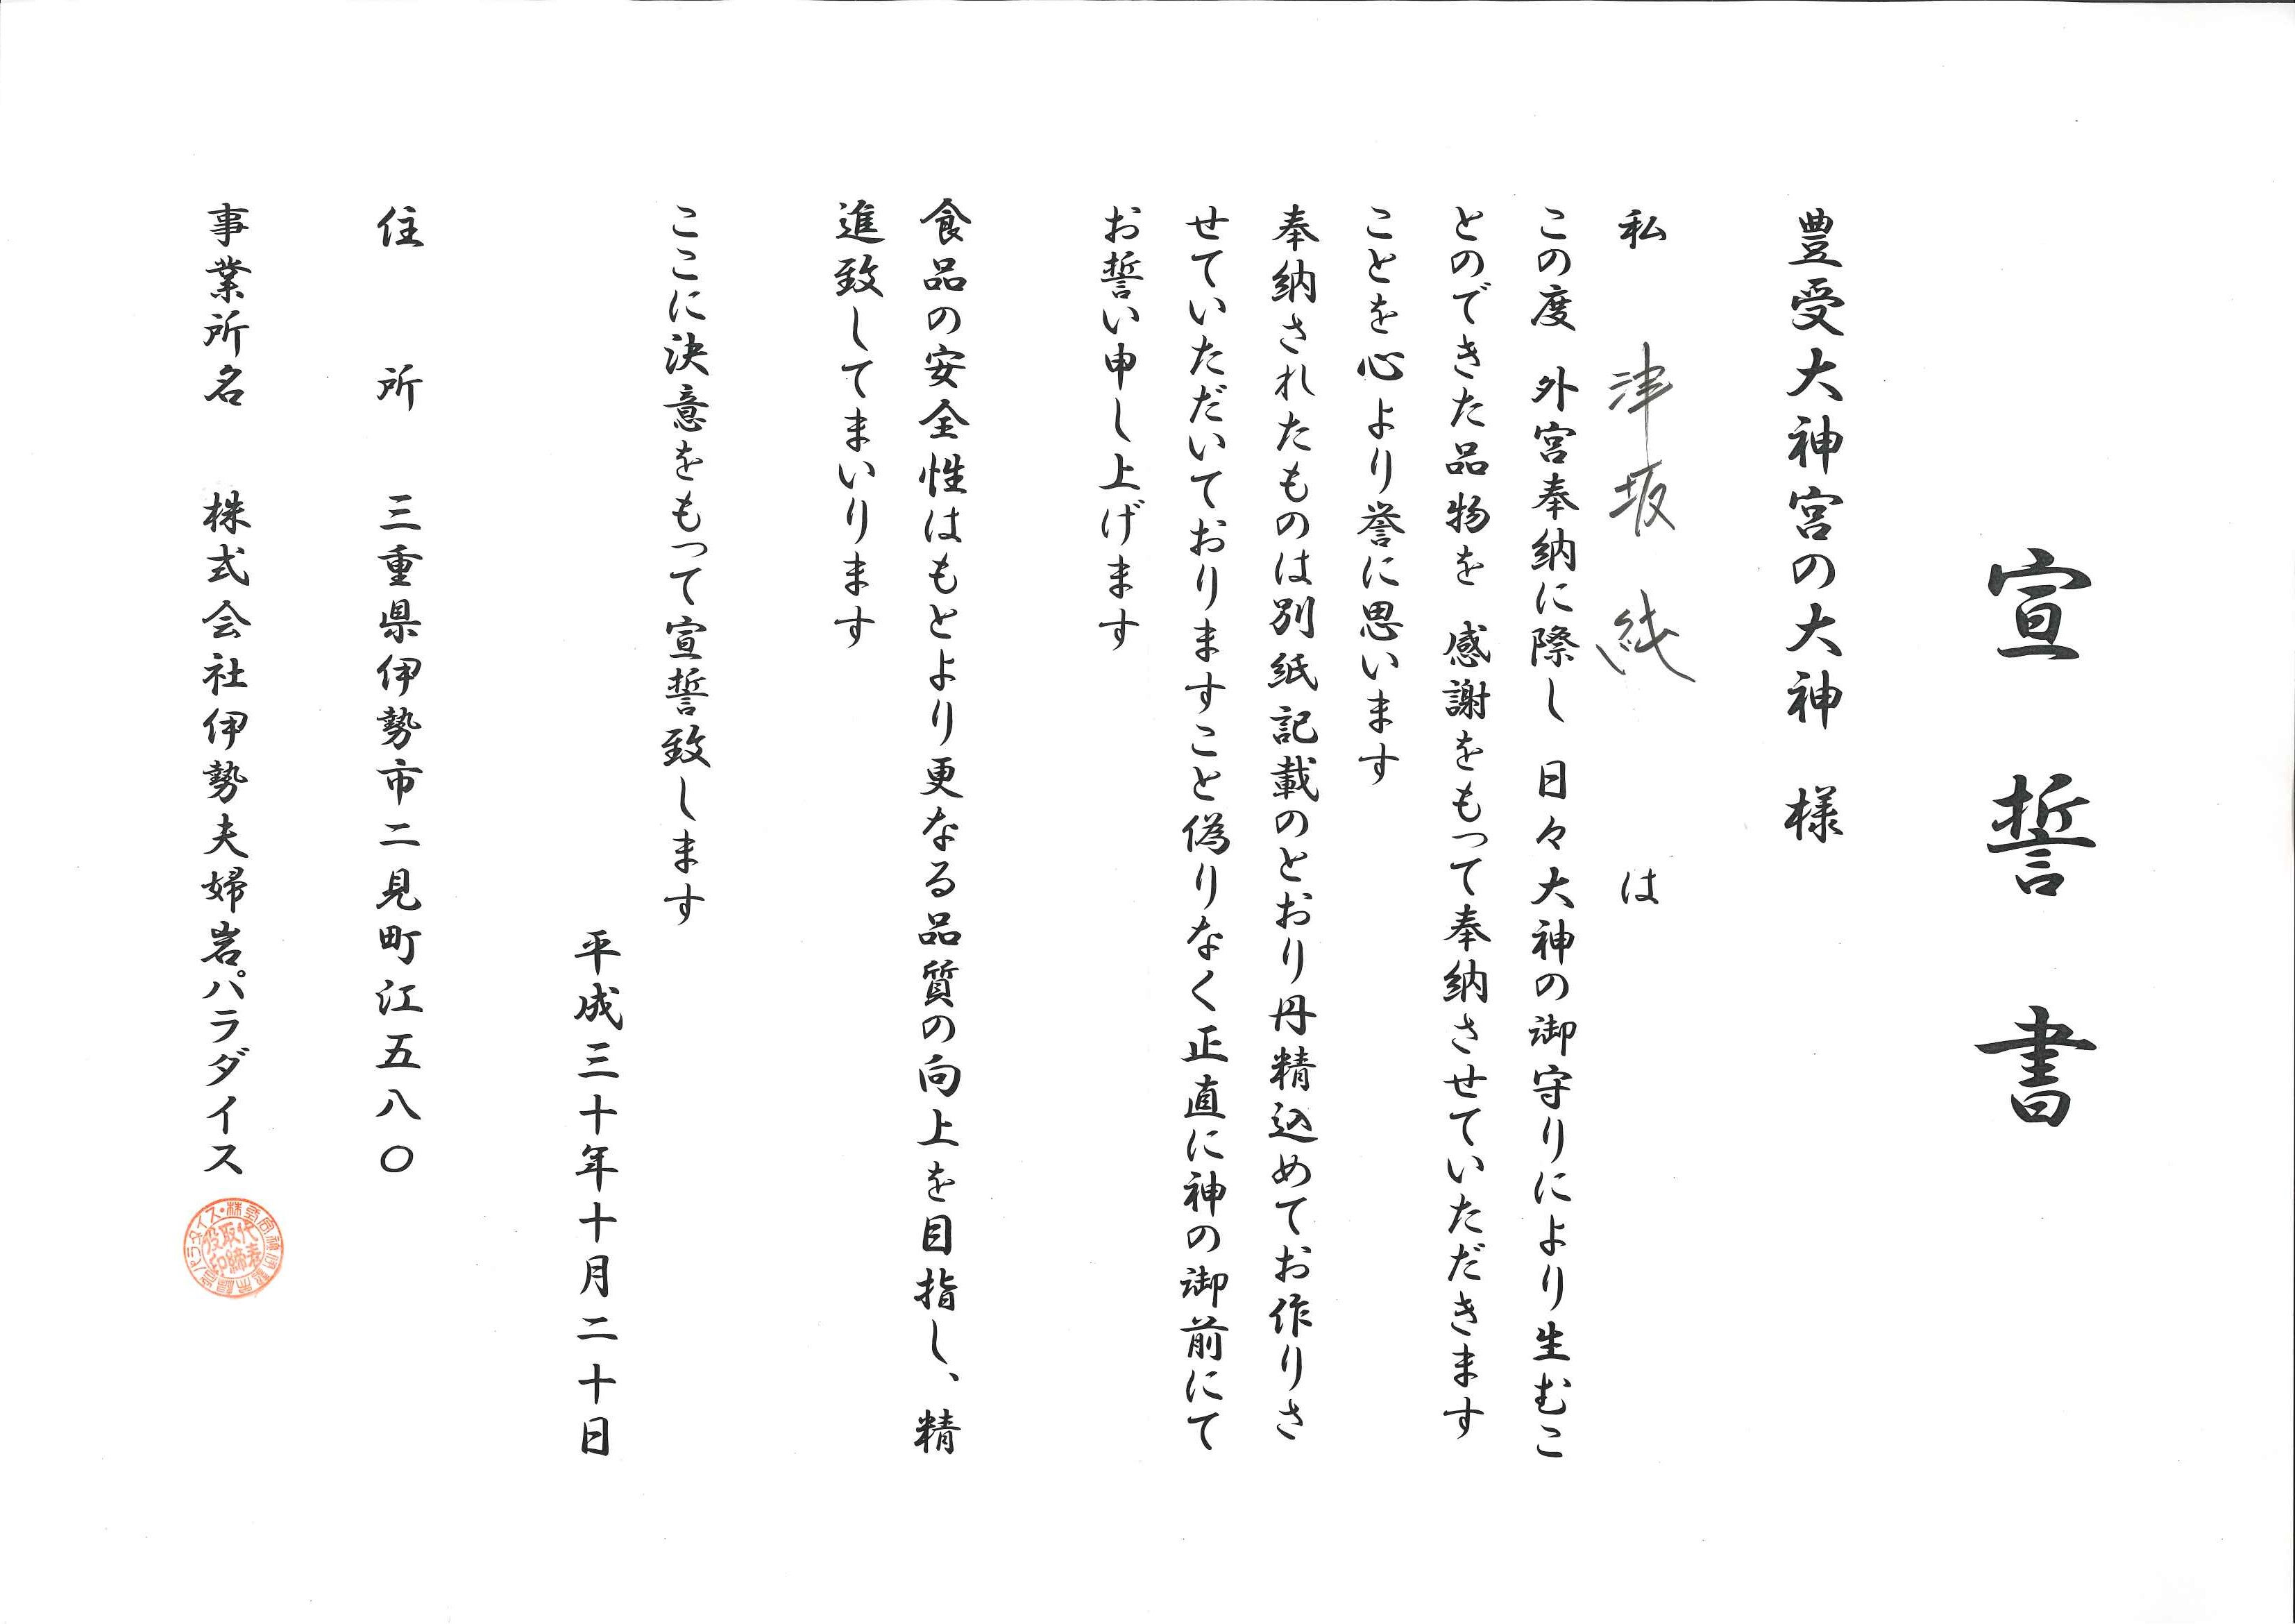 宣誓書
豊受大神宮の大神 様
私 津坂 純 は
この度 外宮奉納に際し 日々大神の御守りにより生むこ
とのできた品物を 感謝をもって奉納させていただきます
ことを心より誉に思います
奉納されたものは別紙記載のとおり丹精込めてお作りさ
せていただいておりますこと偽りなく正直に神の御前にて
お誓い申し上げます
食品の安全性はもとより更なる品質の向上を目指し、精
進致してまいります
ここに決意をもって宣誓致します
平成三十年十月二十日
住所 三重県伊勢市二見町江五八〇
事業所名 株式会社伊勢夫婦岩パラダイス
代表取締役印